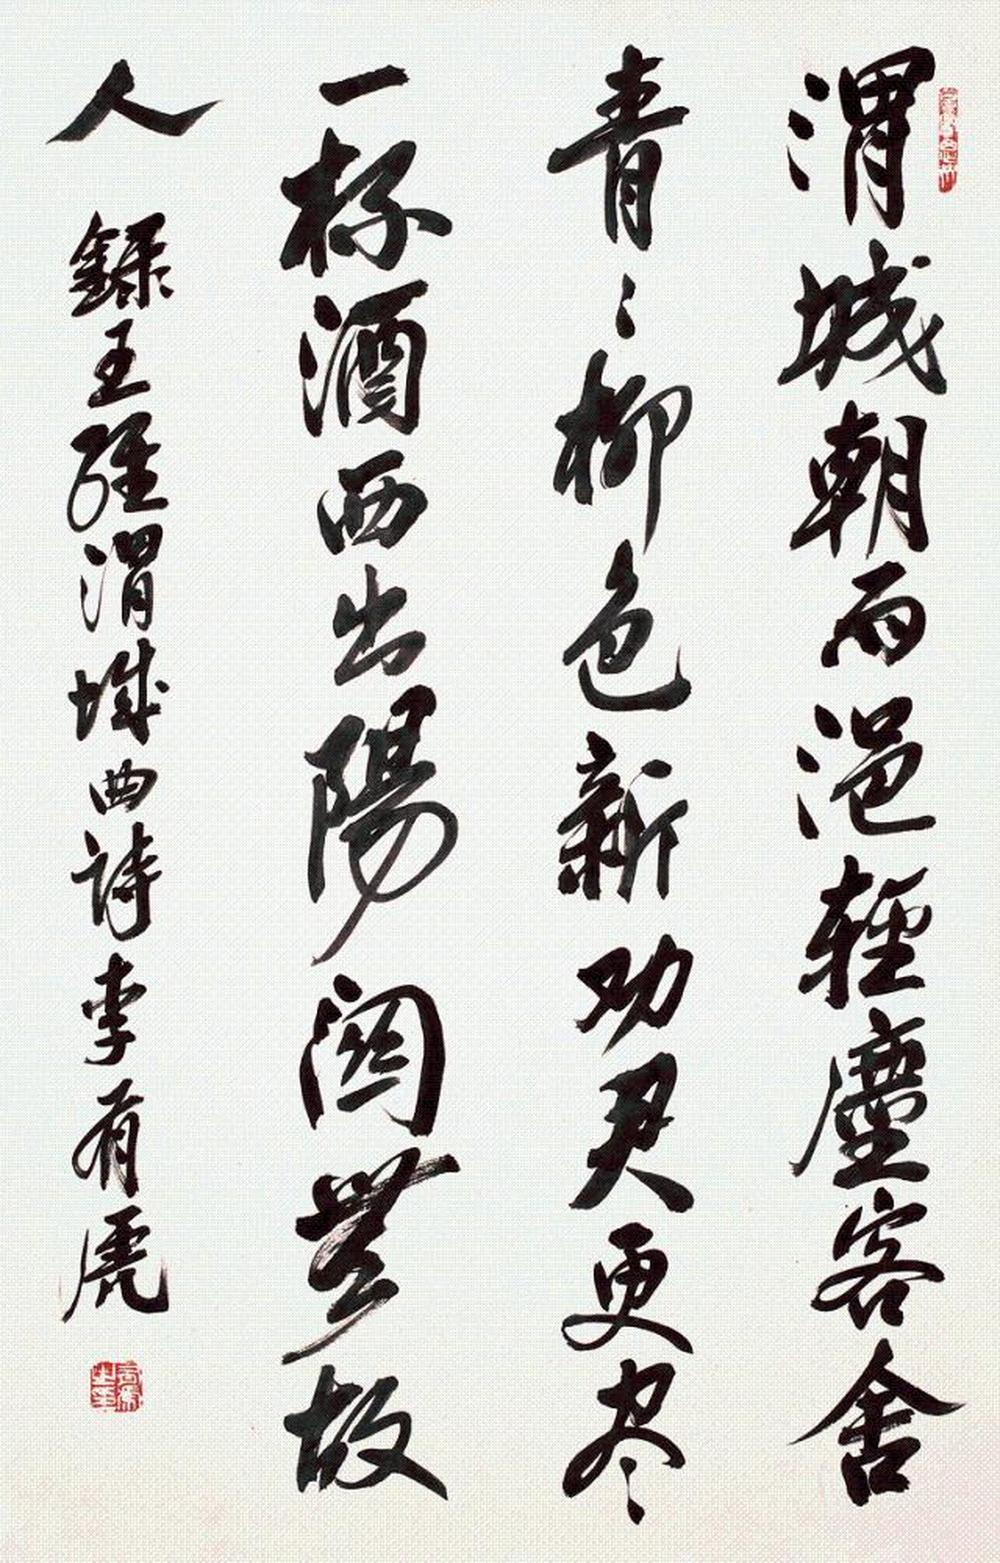 渭城朝雨浥輕塵客舍
青〻柳色新劝君更尽
一杯酒西出陽関無故
人
錄王維渭城曲詩李有虎